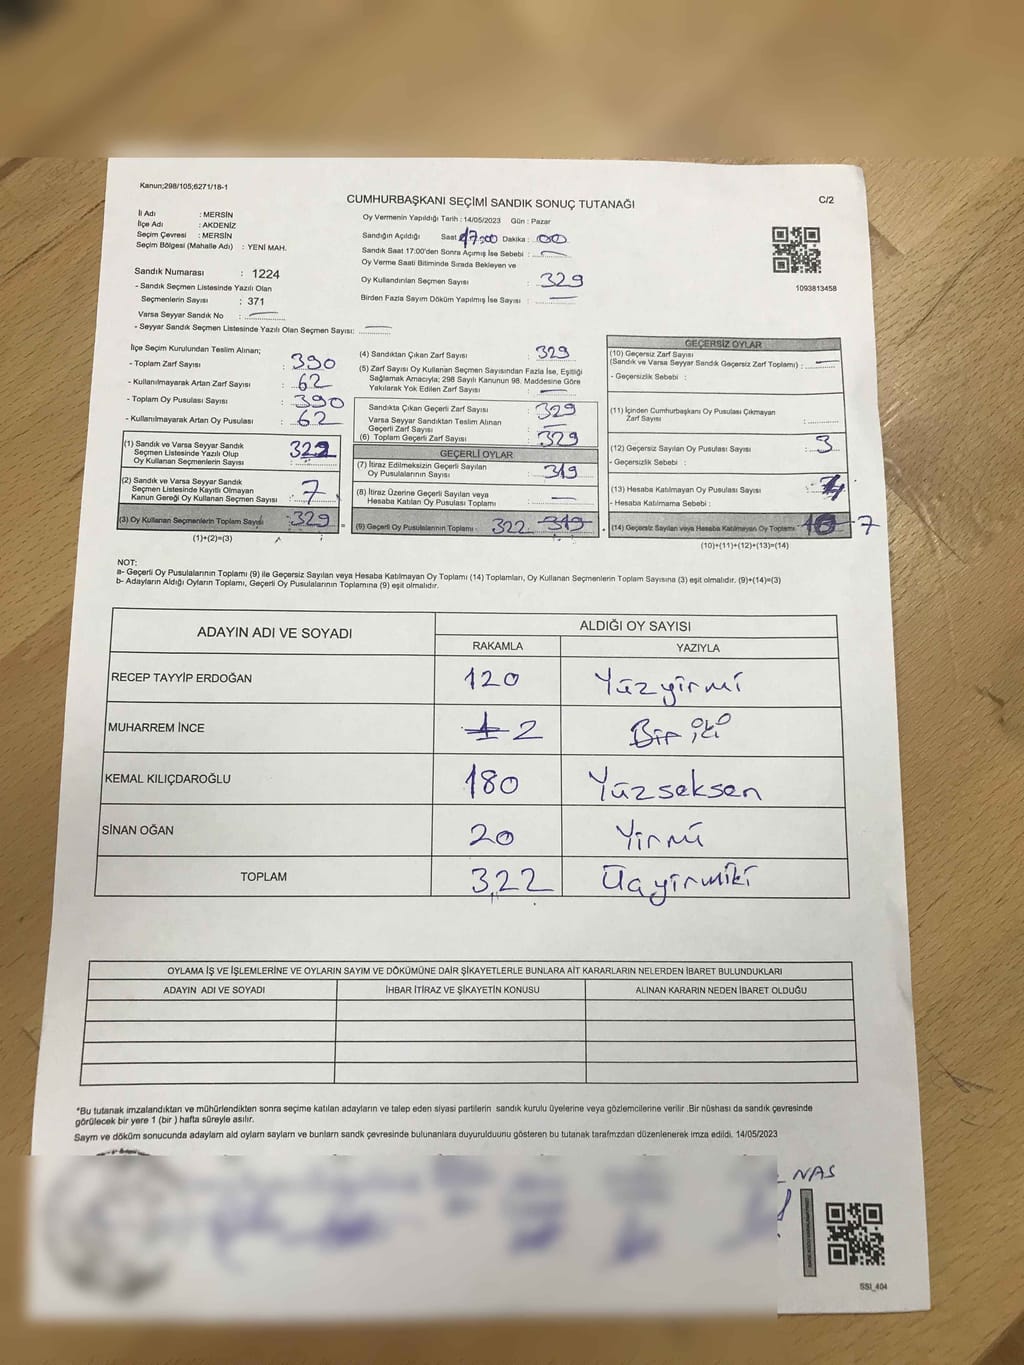 Kanun;298/105;6271/18-1
CUMHURBAŞKANI SEÇİMİ SANDIK SONUÇ TUTANAĞI
C/2
İl Adı : MERSİN
İlçe Adı : AKDENİZ
Seçim Çevresi : MERSİN
Seçim Bölgesi (Mahalle Adı) : YENİ MAH.
Sandık Numarası : 1224
- Sandık Seçmen Listesinde Yazılı Olan
Seçmenlerin Sayısı : 371
Varsa Seyyar Sandık No :
- Seyyar Sandık Seçmen Listesinde Yazılı Olan Seçmen Sayısı:
Oy Vermenin Yapıldığı Tarih : 14/05/2023 Gün : Pazar
Sandığın Açıldığı Saat 17:00 Dakika : 00
Sandık Saat 17:00'den Sonra Açımış İse Sebebi :
Oy Verme Saati Bitiminde Sırada Bekleyen ve
Oy Kullandırılan Seçmen Sayısı : 329
Birden Fazla Sayım Döküm Yapılmış İse Sayısı :
1093813458
İlçe Seçim Kurulundan Teslim Alınan;
- Toplam Zarf Sayısı : 390
- Kullanılmayarak Artan Zarf Sayısı : 62
- Toplam Oy Pusulası Sayısı : 390
- Kullanılmayarak Artan Oy Pusulası : 62
(1) Sandık ve Varsa Seyyar Sandık
Seçmen Listesinde Yazılı Olup
Oy Kullanan Seçmenlerin Sayısı : 322
(2) Sandık ve Varsa Seyyar Sandık
Seçmen Listesinde Kayıtlı Olmayan
Kanun Gereği Oy Kullanan Seçmen Sayısı : 7
(3) Oy Kullanan Seçmenlerin Toplam Sayısı : 329
(1)+(2)=(3)
(4) Sandıktan Çıkan Zarf Sayısı : 329
(5) Zarf Sayısı Oy Kullanan Seçmen Sayısından Fazla İse, Eşitliği
Sağlamak Amacıyla; 298 Sayılı Kanunun 98. Maddesine Göre
Yakılarak Yok Edilen Zarf Sayısı :
Sandıkta Çıkan Geçerli Zarf Sayısı : 329
Varsa Seyyar Sandıktan Teslim Alınan
Geçerli Zarf Sayısı :
(6) Toplam Geçerli Zarf Sayısı : 329
GEÇERLİ OYLAR
(7) İtiraz Edilmeksizin Geçerli Sayılan
Oy Pusulalarının Sayısı : 319
(8) İtiraz Üzerine Geçerli Sayılan veya
Hesaba Katılan Oy Pusulası Sayısı :
(9) Geçerli Oy Pusulalarının Toplamı : 322 319
GEÇERSİZ OYLAR
(10) Geçersiz Zarf Sayısı
(Sandık ve Varsa Seyyar Sandık Geçersiz Zarf Toplamı) :
- Geçersizlik Sebebi :
(11) İçinden Cumhurbaşkanı Oy Pusulası Çıkmayan
Zarf Sayısı :
(12) Geçersiz Sayılan Oy Pusulası Sayısı : 3
- Geçersizlik Sebebi :
(13) Hesaba Katılmayan Oy Pusulası Sayısı :
- Hesaba Katılmama Sebebi :
(14) Geçersiz Sayılan veya Hesaba Katılmayan Oy Toplamı: 10 7
(10)+(11)+(12)+(13)=(14)
NOT:
a- Geçerli Oy Pusulalarının Toplamı (9) ile Geçersiz Sayılan veya Hesaba Katılmayan Oy Toplamı (14) Toplamları, Oy Kullanan Seçmenlerin Toplam Sayısına (3) eşit olmalıdır. (9)+(14)=(3)
b- Adayların Aldığı Oyların Toplamı, Geçerli Oy Pusulalarının Toplamına (9) eşit olmalıdır.
ADAYIN ADI VE SOYADI ALDIĞI OY SAYISI
RAKAMLA YAZIYLA
RECEP TAYYİP ERDOĞAN 120 Yüzyirmi
MUHARREM İNCE 1 2 Bir iki
KEMAL KILIÇDAROĞLU 180 Yüzseksen
SİNAN OĞAN 20 Yirmi
TOPLAM 322 Üçyirmiiki
OYLAMA İŞ VE İŞLEMLERİNE VE OYLARIN SAYIM VE DÖKÜMÜNE DAİR ŞİKAYETLERLE BUNLARA AİT KARARLARIN NELERDEN İBARET BULUNDUKLARI
ADAYIN ADI VE SOYADI İHBAR İTİRAZ VE ŞİKAYETİN KONUSU ALINAN KARARIN NEDEN İBARET OLDUĞU
*Bu tutanak imzalandıktan ve mühürlendikten sonra seçime katılan adayların ve talep eden siyasi partilerin sandık kurulu üyelerine veya gözlemcilerine verilir .Bir nüshası da sandık çevresinde
görülecek bir yere 1 (bir ) hafta süreyle asılır.
Sayım ve döküm sonucunda adayların ald oyların sayların ve bunların sandk çevresinde bulunanlara duyurulduunu gösteren bu tutanak tarafmzdan düzenlenerek imza edildi. 14/05/2023
NAS
SSI_404